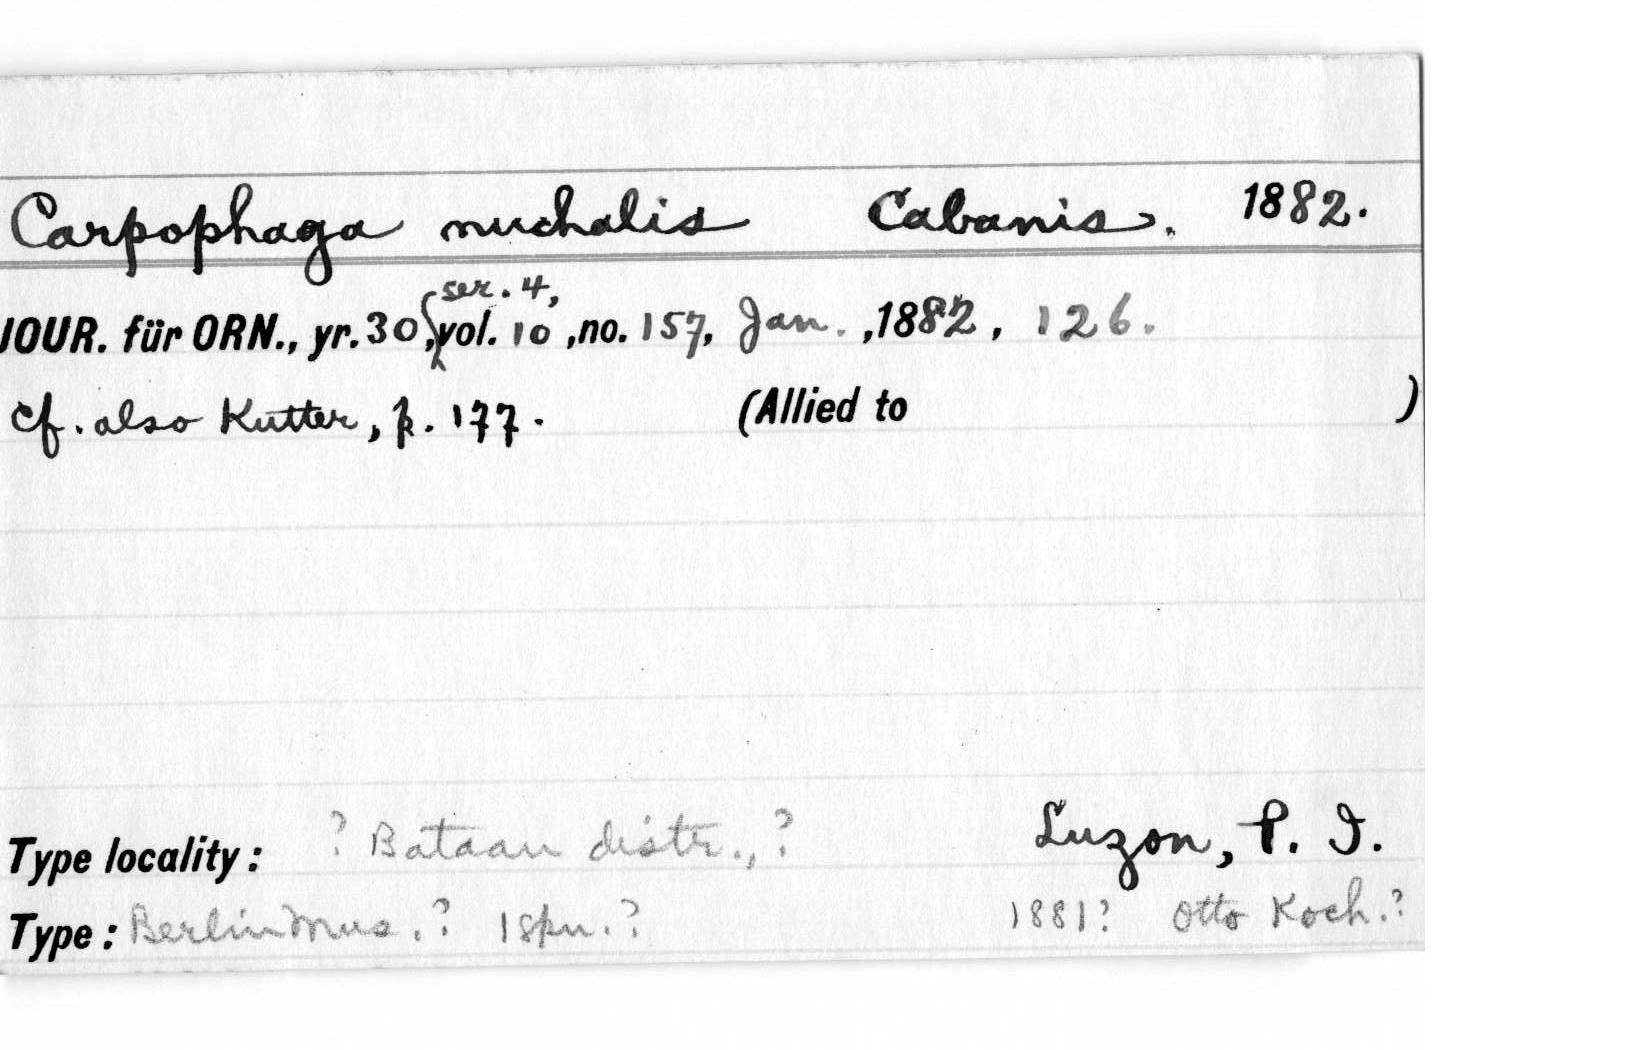 Carpophaga nuchalis Cabanis. 1882.
ser. 4,
JOUR. für ORN., yr. 30, vol. 10, no. 157, Jan., 1882, 126.
cf. also Kutter, p. 177. (Allied to )
Type locality: ? Bataan distr., ? Luzon, P. I.
Type: Berlin Mus.? 1 spn.? 1881? Otto Koch.?